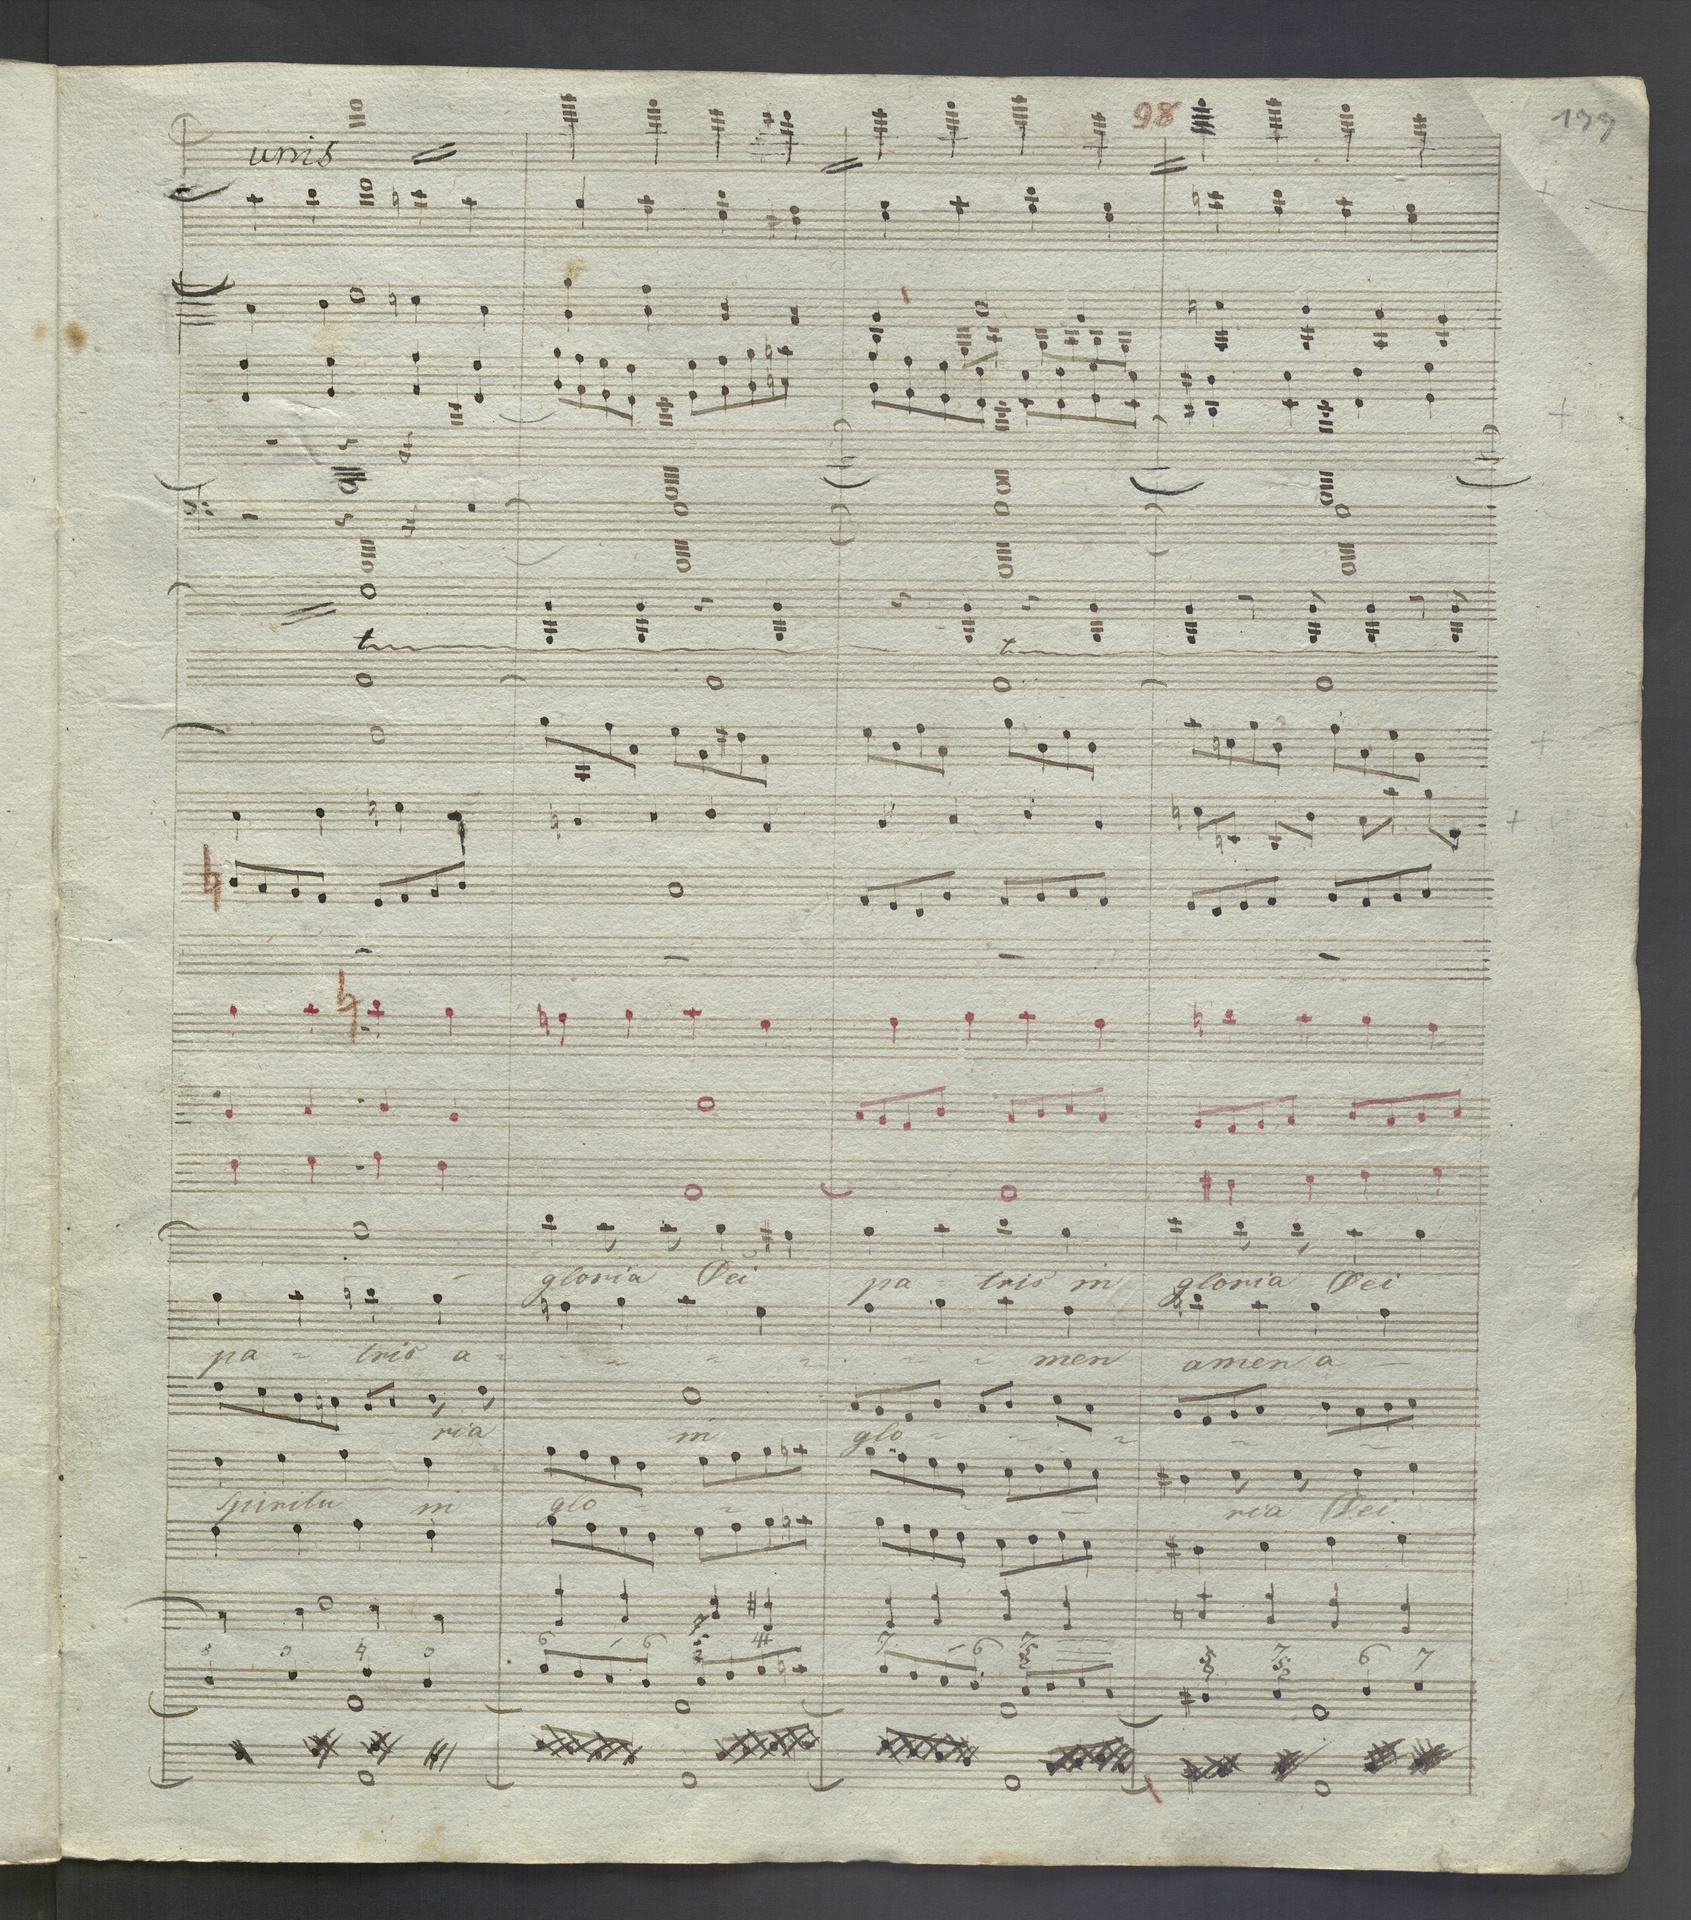 98
199
unis
gloria Dei pa - tris in gloria Dei
pa - tris a - - - - - - - men amen a -
ria in glo - - - - -
Spiritu in glo - - - - ria Dei
6 6 4# 7 6 7 7 6 7